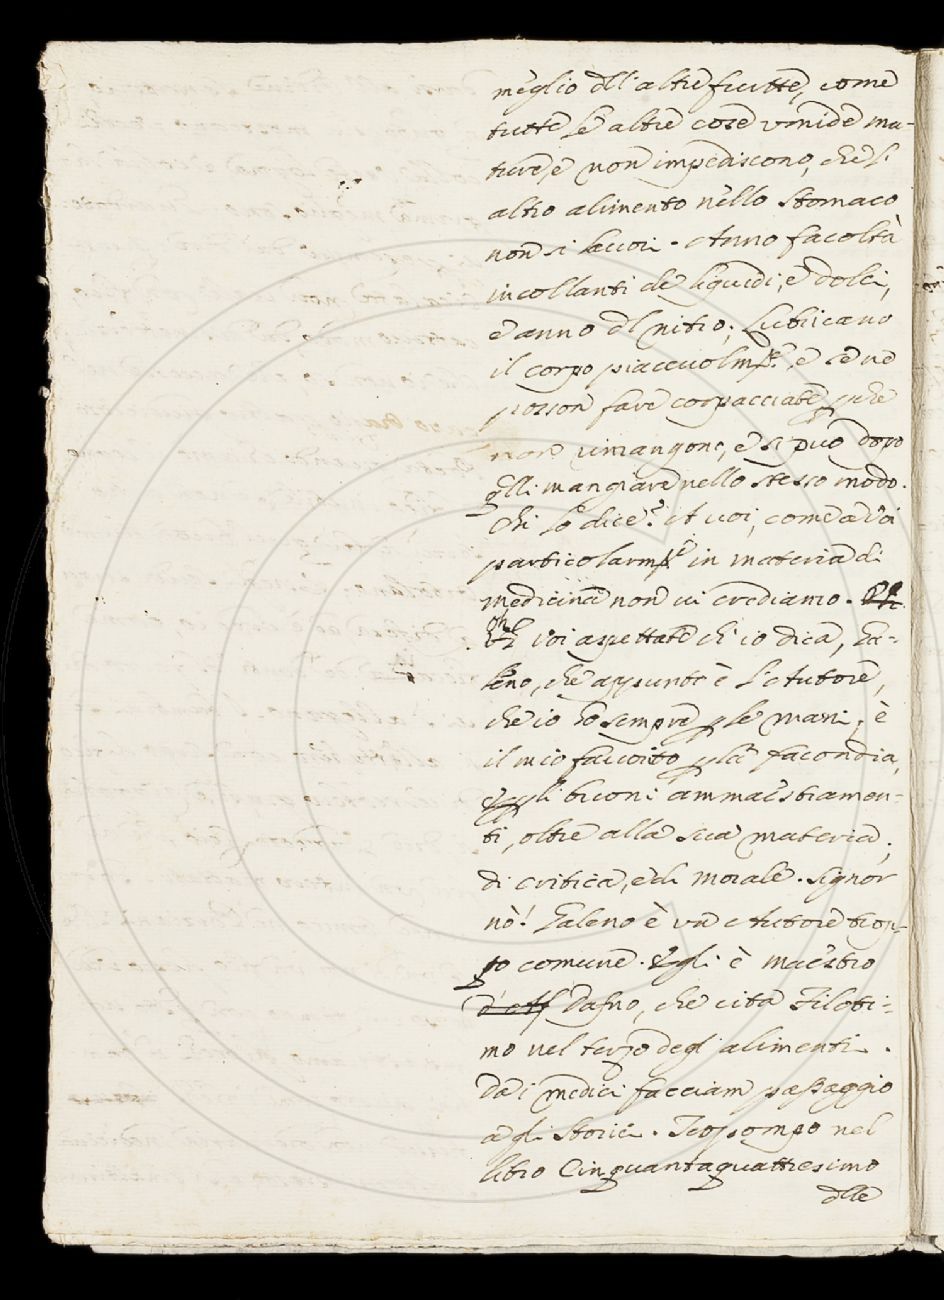 meglio dll'altre frutte, come
tutte le altre cose umide ma-
ture, e non impediscono, che l'
altro alimento nello stomaco
non si lavori. Anno facoltà
incollanti de' liquidi, e dolci,
e anno dl nitro; Lubricano
il corpo piacevolmte, e se ne
posson fare corpacciate, pche
non rimangono, e si può dopo
qlli mangiare nello stesso modo.
Chi lo dice? A voi, come a voi
particolarmte in materia di
medicina non vi crediamo.
Oh voi aspettate ch'io dica, Ga-
leno, che appunto è l'Autore,
che io ho sempre p le mani, è
il mio favorito p la facondia,
p gli buoni ammaestramen-
ti, oltre alla sua materia,
di critica, e di morale. Signor
nò! Galeno è un Autore trop-
po comune. Egli è maestro
Dafno, che cita Filoti-
mo nel terzo degl'alimenti.
Da i medici facciam passaggio
agli storici. Teopompo nel
libro Cinquantaquattresimo
dlle